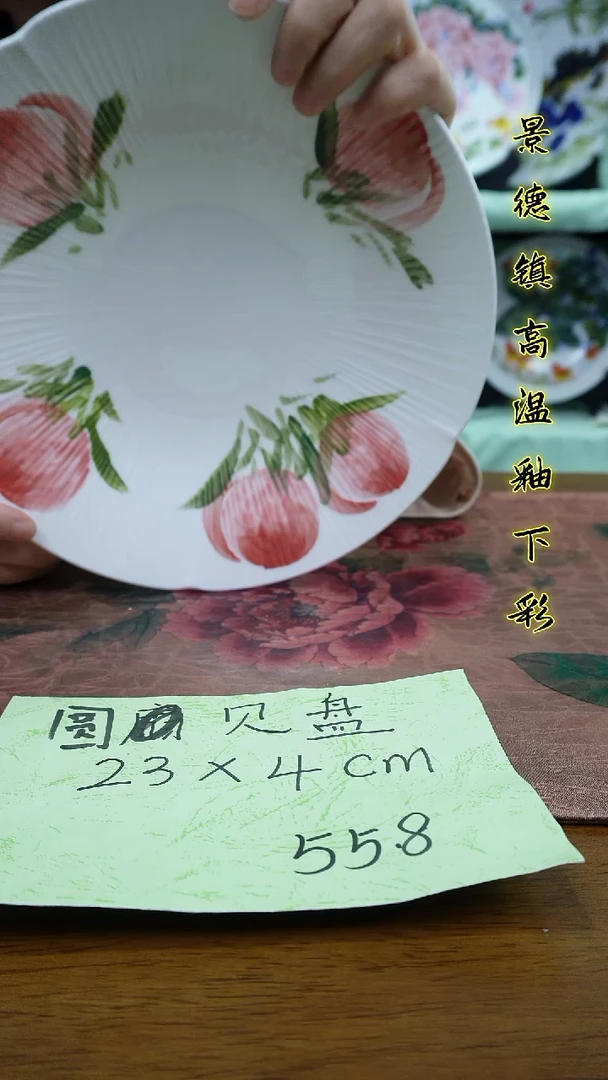 景德镇高温釉下彩
圆贝盘
23×4cm
55.8